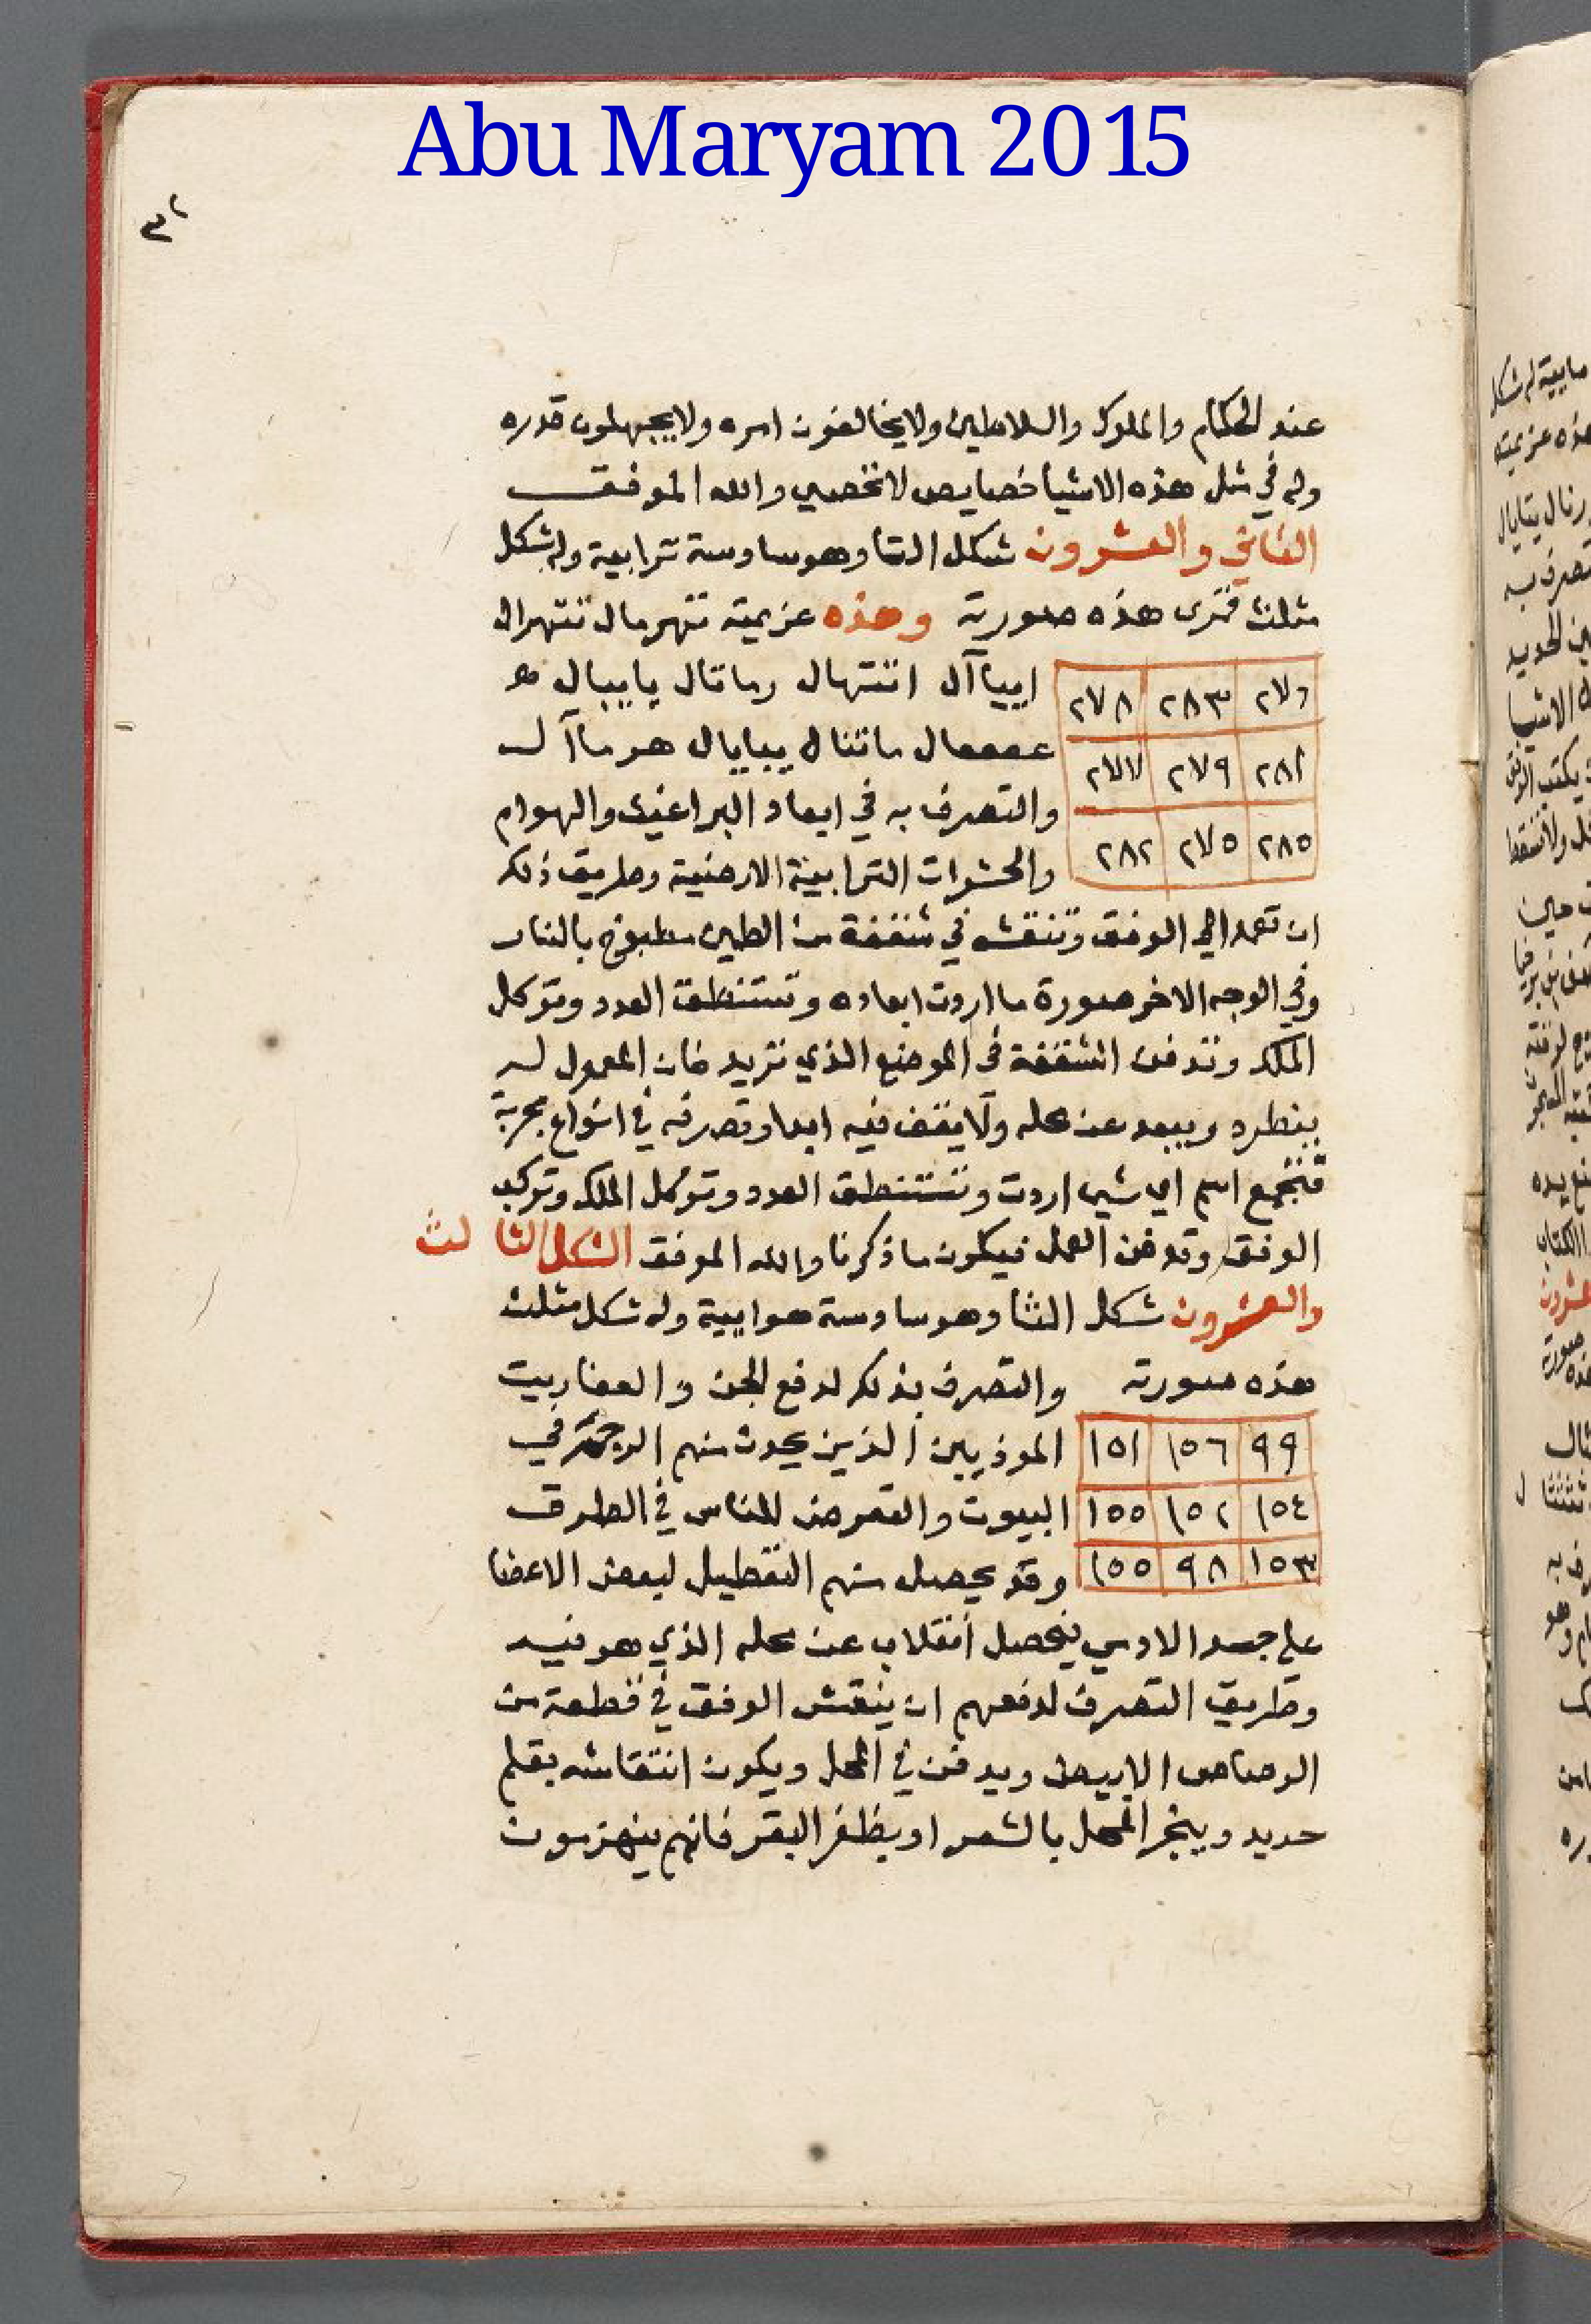 Abu Maryam 2015
٣٢
عند الحكام والملوك والسلاطين ولايخالفون امره ولايجهلون قدره
وله في مثل هذه الاشيا خصايص لاتخصي والله الموفق
الثاني والعشرون شكل التا وهو سادسة ترابية وله شكل
مثلث فترى هذه صورته وهذه عزيمته تنهرمال تنتهرال
٢٧٦ ٢٨٣ ٢٧٨ اييا آل انتهال رماتال ياييال
٢٨١ ٢٧٩ ٢٧٧ ماتنال يبايال هرما آل
والتصرف به في ابعاد البراغيث والهوام
٢٨٥ ٢٧٥ ٢٨٢ والحشرات الترابية الارضية وطريق ذلك
ان تعمد الي الوفق وتنقشه في شقفة من الطين مطبوخ بالنار
وفي الوجه الاخر صورة ما اردت ابعاده وتستنطق العدد وتوكل
الملك وتدفن الشقفة في الموضع الذي تريد فان المعمول له
ينطرد ويبعد عن محله ولايقف فيه ابدا وتصرفه في انواع مجربة
فتجمع اسم اي شي اردت وتستنطق العدد وتوكل الملك وتركب
الوفق وتدفن العمل فيكون ماذكرنا والله الموفق الشكل الثالث
والعشرون شكل الثا وهو سادسة هوايية وله شكل مثلث
هذه صورته والتصرف بذلك لدفع الجن والعفاريت
٩٩ ١٥٦ ١٥١ الموذيين الذين يحدث منهم الرجمة في
١٥٤ ١٥٢ ١٥٥ البيوت والتعرض للناس في الطرق
١٥٣ ٩٨ ١٥٥ وقد يحصل منهم التعطيل لبعض الاعضا
علي جسد الادمي فيحصل انقلاب عن محله الذي هو فيه
وطريق التصرف لدفعهم ان ينقش الوفق في قطعة من
الرصاص الابيض ويدفن في المحل ويكون انتقاشه بقلم
حديد ويبخر المحل بالشعر او بظفر البقر فانهم ينهزمون